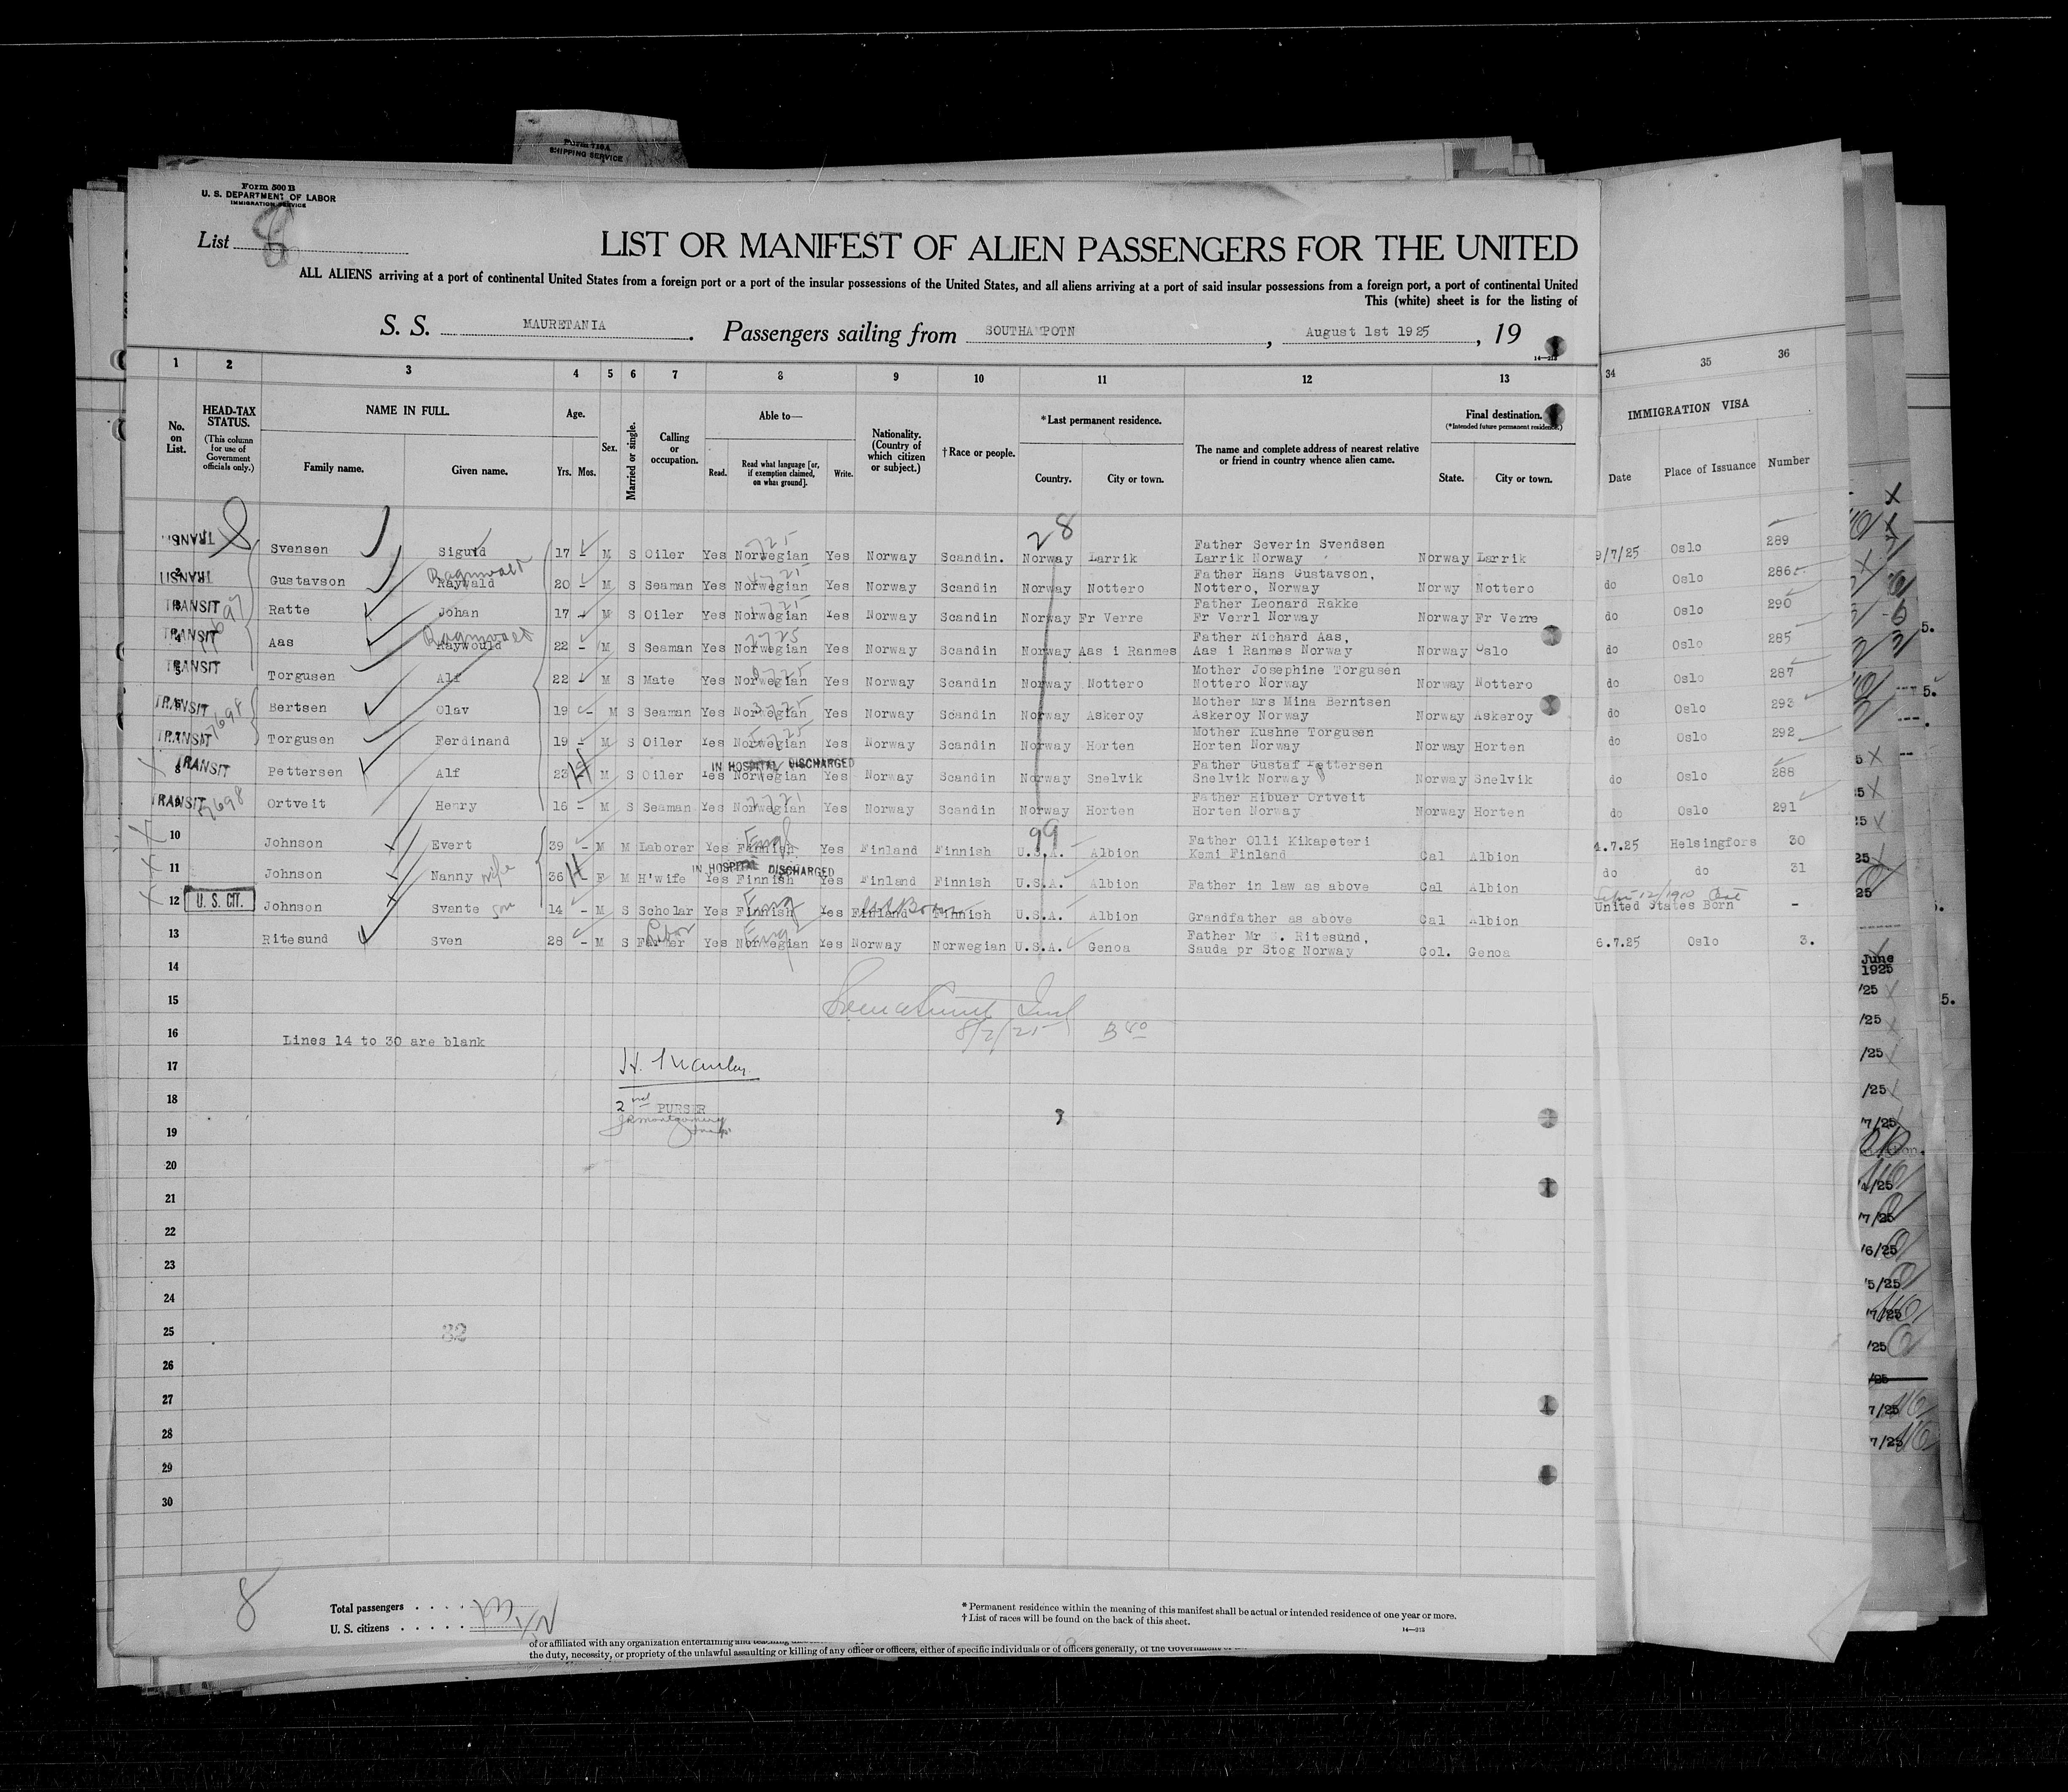 Form 716A
SHIPPING SERVICE
Form 500 B
U. S. DEPARTMENT OF LABOR
IMMIGRATION SERVICE
List 8
LIST OR MANIFEST OF ALIEN PASSENGERS FOR THE UNITED
ALL ALIENS arriving at a port of continental United States from a foreign port or a port of the insular possessions of the United States, and all aliens arriving at a port of said insular possessions from a foreign port, a port of continental United
This (white) sheet is for the listing of
S. S. MAURETANIA. Passengers sailing from SOUTHAMPOTN, August 1st 1925, 19
1 2 3 4 5 6 7 8 9 10 11 12 13 34 35 36
No. on List.
HEAD-TAX STATUS.
(This column for use of Government officials only.)
NAME IN FULL.
Family name. Given name.
Age.
Yrs. Mos.
Sex.
Married or single.
Calling or occupation.
Able to—
Read. Read what language [or, if exemption claimed, on what ground]. Write.
Nationality. (Country of which citizen or subject.)
†Race or people.
*Last permanent residence.
Country. City or town.
The name and complete address of nearest relative or friend in country whence alien came.
Final destination.
(*Intended future permanent residence.)
State. City or town.
IMMIGRATION VISA
Date Place of Issuance Number
28
TRANSIT Svensen Sigurd 17 - M S Oiler Yes Norwegian Yes Norway Scandin. Norway Larrik Father Severin Svendsen Larrik Norway Norway Larrik 9/7/25 Oslo 289
TRANSIT Gustavson Raywald Ragnwald 20 - M S Seaman Yes Norwegian Yes Norway Scandin Norway Nottero Father Hans Gustavson, Nottero, Norway Norwy Nottero do Oslo 286
TRANSIT Ratte Johan 17 - M S Oiler Yes Norwegian Yes Norway Scandin Norway Fr Verre Father Leonard Rakke Fr Verrl Norway Norway Fr Verre do Oslo 290
TRANSIT Aas Raywould Ragnwald 22 - M S Seaman Yes Norwegian Yes Norway Scandin Norway Aas i Ranmes Father Richard Aas, Aas i Ranmes Norway Norway Oslo do Oslo 285
TRANSIT Torgusen Alf 22 - M S Mate Yes Norwegian Yes Norway Scandin Norway Nottero Mother Josephine Torgusen Nottero Norway Norway Nottero do Oslo 287
TRANSIT Bertsen Olav 19 - M S Seaman Yes Norwegian Yes Norway Scandin Norway Askeroy Mother Mrs Mina Berntsen Askeroy Norway Norway Askeroy do Oslo 293
TRANSIT Torgusen Ferdinand 19 - M S Oiler Yes Norwegian Yes Norway Scandin Norway Horten Mother Kushne Torgusen Horten Norway Norway Horten do Oslo 292
IN HOSPITAL DISCHARGED
TRANSIT Pettersen Alf 23 M S Oiler Yes Norwegian Yes Norway Scandin Norway Snelvik Father Gustaf Pettersen Snelvik Norway Norway Snelvik do Oslo 288
TRANSIT Ortveit Henry 16 - M S Seaman Yes Norwegian Yes Norway Scandin Norway Horten Father Hibuer Ortveit Horten Norway Norway Horten do Oslo 291
99
10 Johnson Evert 39 - M M Laborer Yes Finnish Engl Yes Finland Finnish U.S.A. Albion Father Olli Kikapeteri Kemi Finland Cal Albion 4.7.25 Helsingfors 30
IN HOSPITAL DISCHARGED
11 Johnson Nanny wife 36 F M H'wife Yes Finnish Yes Finland Finnish U.S.A. Albion Father in law as above Cal Albion do do 31
12 U. S. CIT. Johnson Svante son 14 - M S Scholar Yes Finnish Eng Yes Finland U.S. Born Finnish U.S.A. Albion Grandfather as above Cal Albion United States Born -
13 Ritesund Sven 28 - M S Farmer Labor Yes Norwegian Engl Yes Norway Norwegian U.S.A. Genoa Father Mr . Ritesund, Sauda pr Stog Norway Col. Genoa 6.7.25 Oslo 3.
14
15
16
8/7/25
Lines 14 to 30 are blank
17
H. Manley
18
2nd PURSER
JR Montgomery
19
20
21
22
23
24
25
82
26
27
28
29
30
8
Total passengers
U. S. citizens
* Permanent residence within the meaning of this manifest shall be actual or intended residence of one year or more.
† List of races will be found on the back of this sheet.
14—212
of or affiliated with any organization entertaining and teaching
the duty, necessity, or propriety of the unlawful assaulting or killing of any officer or officers, either of specific individuals or of officers generally, of the Government
June
1925